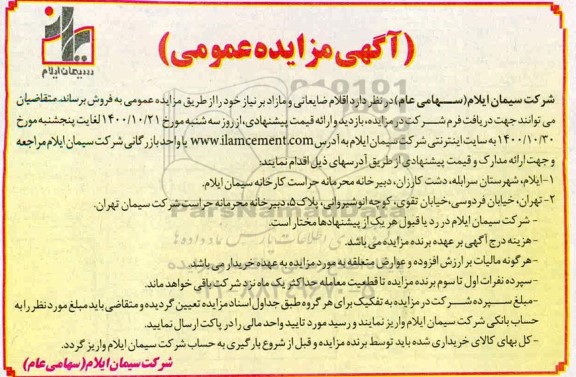 سیمان ایلام
(آگهی مزایده عمومی)
شرکت سیمان ایلام (سهامی عام) در نظر دارد اقلام ضایعاتی و مازاد بر نیاز خود را از طریق مزایده عمومی به فروش برساند. متقاضیان
می توانند جهت دریافت فرم شرکت در مزایده، بازدید و ارائه قیمت پیشنهادی، از روز سه شنبه مورخ ۱۴۰۰/۱۰/۲۱ لغایت پنجشنبه مورخ
۱۴۰۰/۱۰/۳۰ به سایت اینترنتی شرکت سیمان ایلام به آدرس www.ilamcement.com یا واحد بازرگانی شرکت سیمان ایلام مراجعه
و جهت ارائه مدارک و قیمت پیشنهادی از طریق آدرسهای ذیل اقدام نمایند:
۱- ایلام، شهرستان سرابله، دشت کارزان، دبیرخانه محرمانه حراست کارخانه سیمان ایلام.
۲- تهران، خیابان فردوسی، خیابان تقوی، کوچه انوشیروانی، پلاک ۵، دبیرخانه محرمانه حراست شرکت سیمان تهران.
- شرکت سیمان ایلام در رد یا قبول هر یک از پیشنهادها مختار است.
- هزینه درج آگهی بر عهده برنده مزایده می باشد.
- هرگونه مالیات بر ارزش افزوده و عوارض متعلقه به مورد مزایده به عهده خریدار می باشد.
- سپرده نفرات اول تا سوم برنده مزایده تا قطعیت معامله حداکثر یک ماه نزد شرکت باقی خواهد ماند.
- مبلغ سپرده شرکت در مزایده به تفکیک برای هر گروه طبق جداول اسناد مزایده تعیین گردیده و متقاضی باید مبلغ مورد نظر را به
حساب بانکی شرکت سیمان ایلام واریز نمایند و رسید مورد تایید واحد مالی را در پاکت ارسال نمایید.
- کل بهای کالای خریداری شده باید توسط برنده مزایده و قبل از شروع بارگیری به حساب شرکت سیمان ایلام واریز گردد.
شرکت سیمان ایلام (سهامی عام)